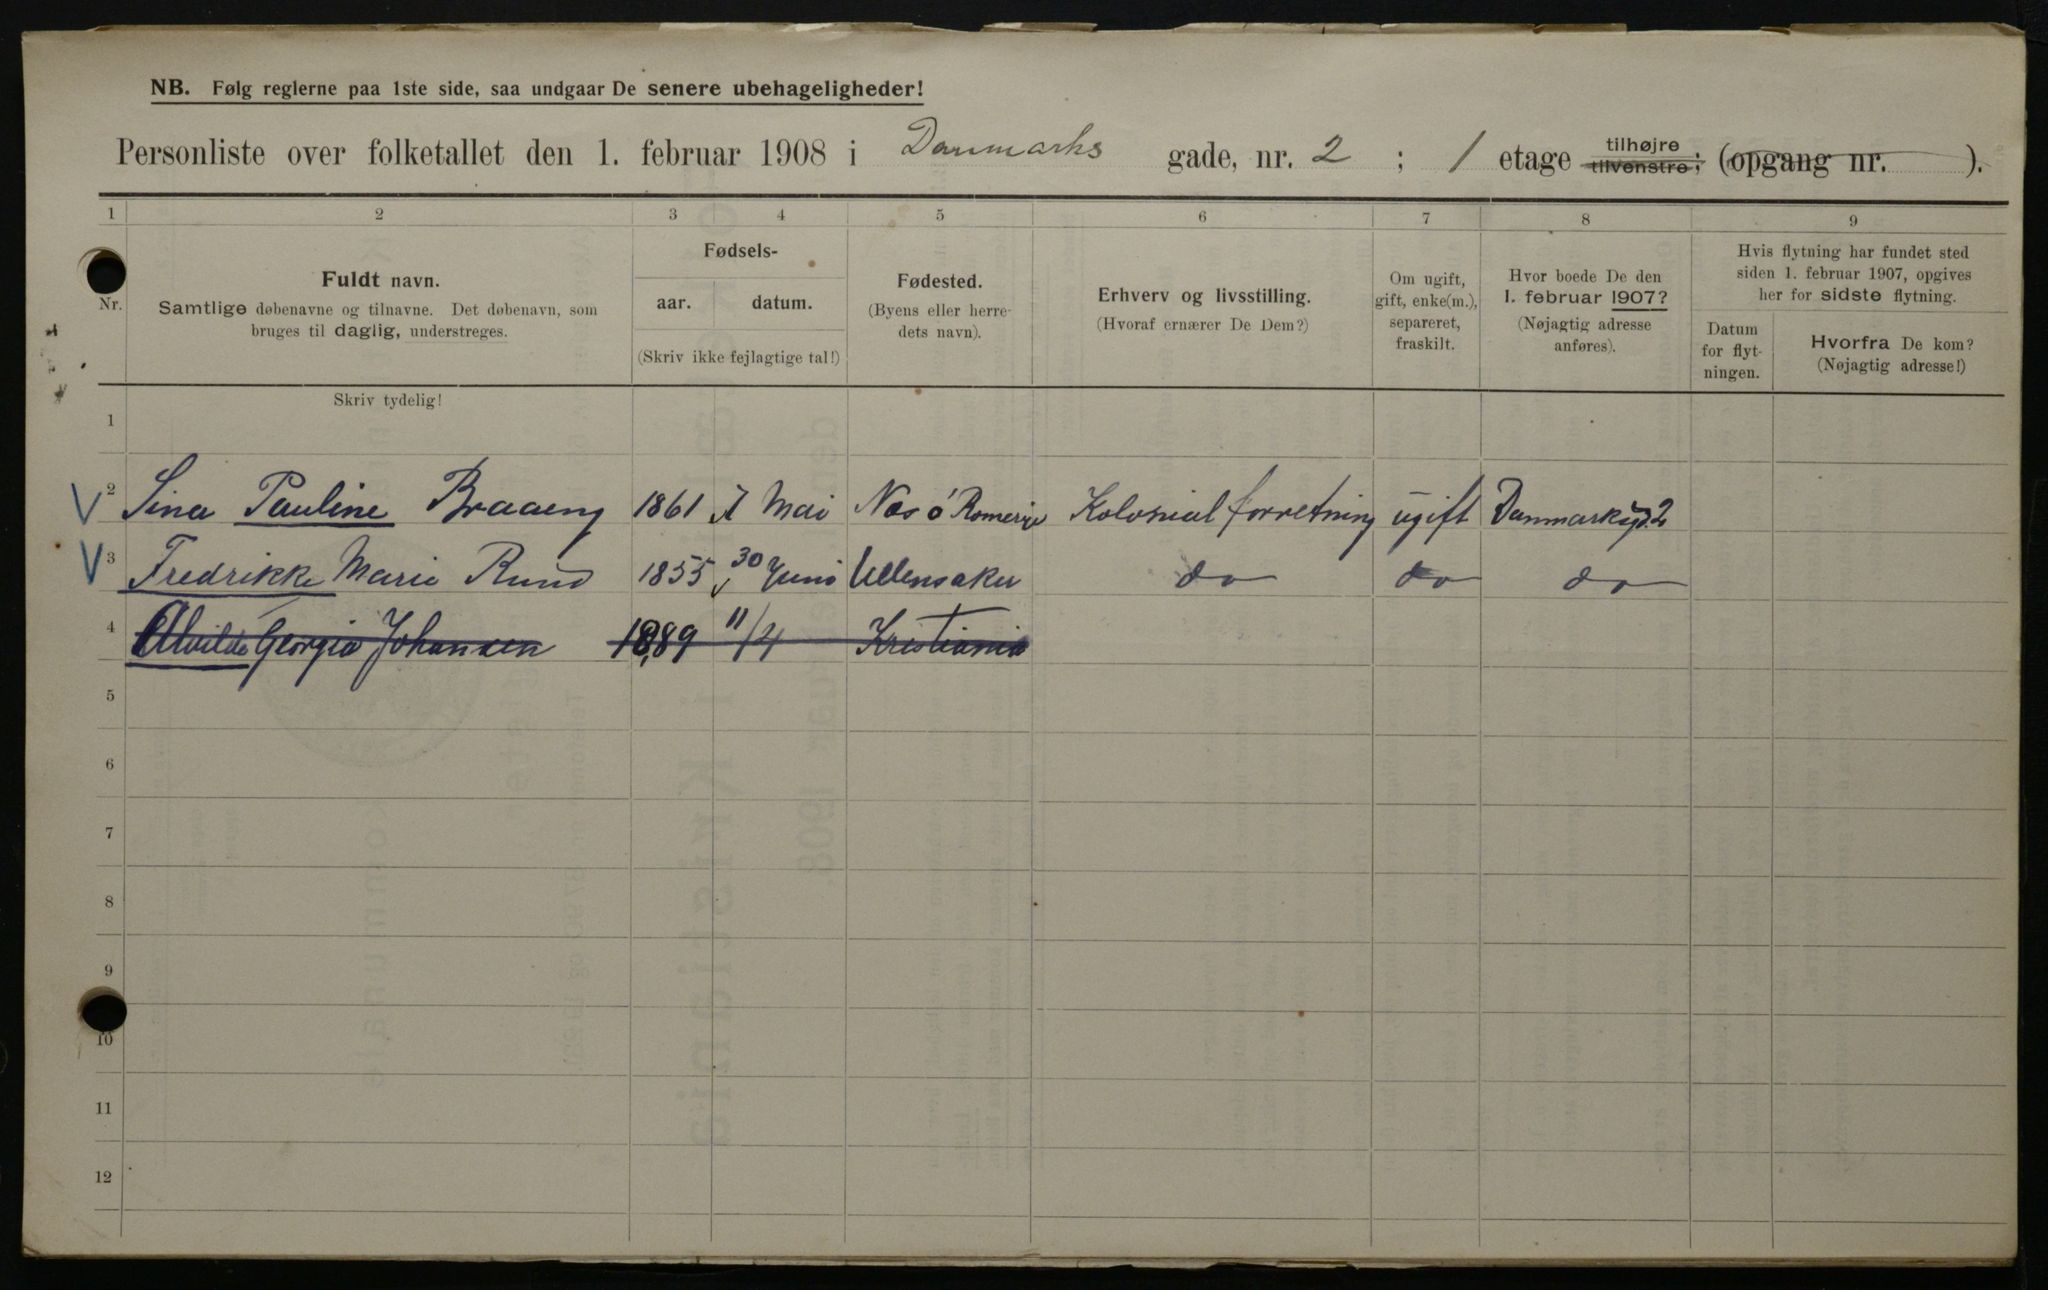 NB. Følg reglerne paa 1ste side, saa undgaar De senere ubehageligheder!
Personliste over folketallet den 1. februar 1908 i Danmarks gade, nr. 2 ; 1 etage tilhøjre tilvenstre; (opgang nr. ).
1 2 3 4 5 6 7 8 9
Nr.
Fuldt navn.
Samtlige døbenavne og tilnavne. Det døbenavn, som
bruges til daglig, understreges.
Fødsels-
aar. datum.
(Skriv ikke fejlagtige tal!)
Fødested.
(Byens eller herre-
dets navn).
Erhverv og livsstilling.
(Hvoraf ernærer De Dem?)
Om ugift,
gift, enke(m.),
separeret,
fraskilt.
Hvor boede De den
1. februar 1907?
(Nøjagtig adresse
anføres).
Hvis flytning har fundet sted
siden 1. februar 1907, opgives
her for sidste flytning.
Datum
for flyt-
ningen.
Hvorfra De kom?
(Nøjagtig adresse!)
Skriv tydelig!
1
V 2 Sina Pauline Braaeng 1861 7 Mai Nes ö Romerige Kolonial forretning ugift Danmarksgd. 2
V 3 Fredrikke Marie Ruud 1855 30 Juni Ullensaker do do do
4 Alvilde Georgia Johansen 1889 11/4 Kristiania
5
6
7
8
9
10
11
12